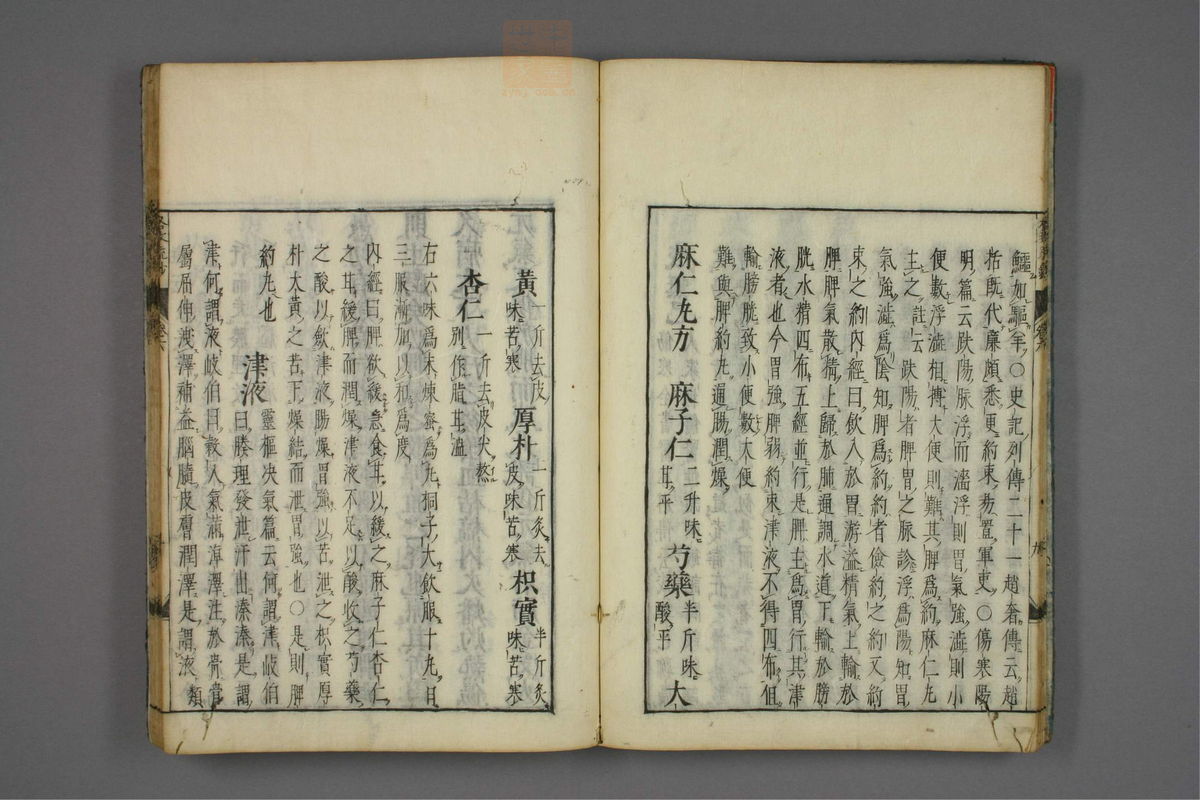 鱷如驅羊○史記列傳二十一趙奢傳云趙
括既代廉頗悉更約束易置軍吏○傷寒陽
明篇云趺陽脉浮而濇浮則胃氣強澁則小
便數浮澁相搏大便則難其脾爲約麻仁丸
主之註云趺陽者脾胃之脉診浮爲陽知胃
氣強澁爲陰知脾爲約約者儉約之約又約
束之約内經曰飲入於胃游溢精氣上輸於
脾脾氣散精上歸於肺通調水道下輸於膀
胱水精四布五經並行是脾主爲胃行其津
液者也今胃強脾弱約束津液不得四布但
輸膀胱致小便數大便
難與脾約丸通腸潤燥
麻仁丸方 麻子仁二升味甘平 芍藥半斤味酸平 大
黃一斤去皮味苦寒 厚朴一斤炙去皮味苦寒 枳實半斤炙味苦寒
杏仁一斤去皮尖熬別作脂甘溫
右六味爲末煉蜜爲丸桐子大飲服十丸日
三服漸加以和爲度
内經曰脾欲緩急食甘以緩之麻子仁杏仁
之甘緩脾而潤燥津液不足以酸收之芍藥
之酸以歛津液腸燥胃強以苦泄之枳實厚
朴大黃之苦下燥結而泄胃強也○是則脾
約丸也
津液 靈樞决氣篇云何謂津岐伯
曰腠理發泄汗出溱溱是謂
津何謂液岐伯曰穀入氣滿淖澤注於骨骨
屬屈伸淺澤補益腦髓皮膚潤澤是謂液 類